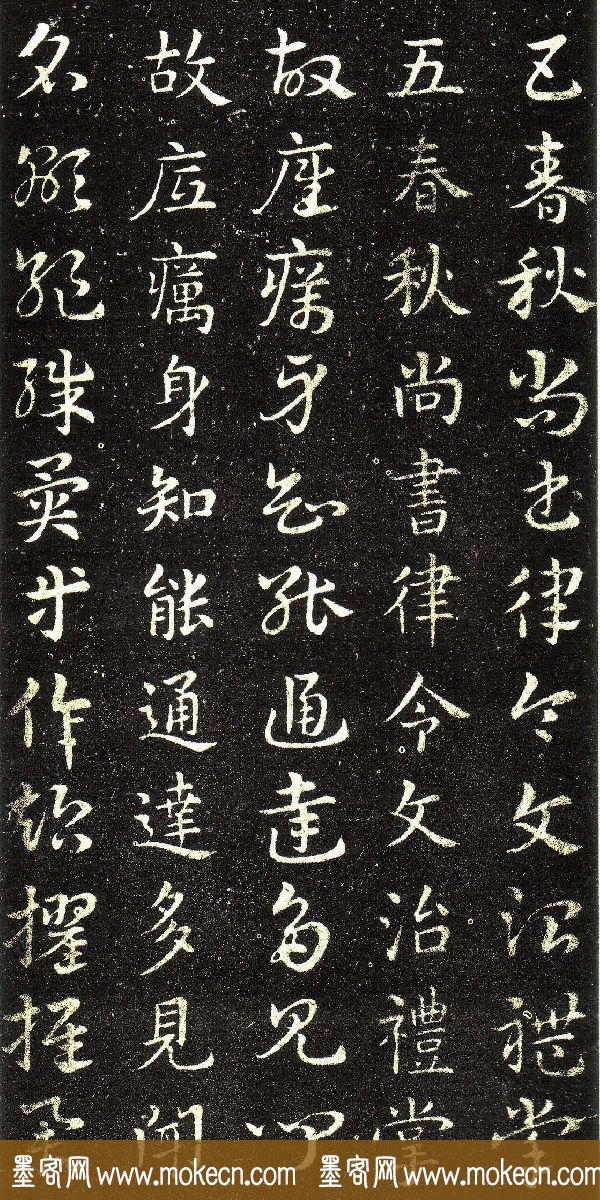 五春秋尚書律令文治禮掌
五春秋尚書律令文治禮掌
故底癘身知能通達多見聞
故底癘身知能通達多見聞
名顯絕殊異等倫超擢推
墨客网 www.mokecn.com 墨客网 www.mokecn.com